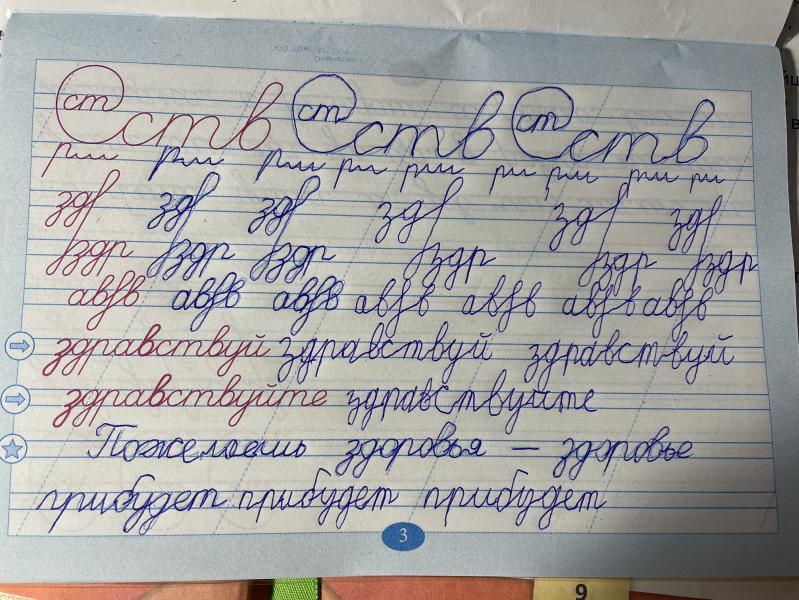 ст ств ст ств ст ств
рш рш рш рш рш рш рш рш рш
зд зд зд зд зд зд
здр здр здр здр здр здр
авв авв авв авв авв авв авв
здравствуй здравствуй здравствуй
здравствуйте здравствуйте
Пожелаешь здоровья — здоровье
прибудет прибудет прибудет
3
9